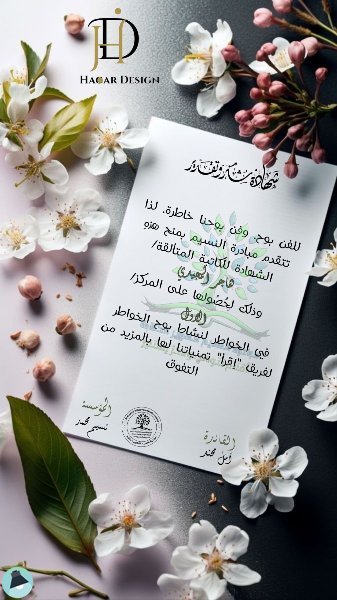 HAQAR DESIGN
شهادة شكر وتقدير
للفن بوح، وفن بوحنا خاطرة، لذا
تتقدم مبادرة النسيم بمنح هزو
الشهادة للكاتبة المتألقة/
وذلك لحصولها على المركز/
الأول
في الخواطر لنشاط بوح الخواطر
لفريق "اقرأ" تمنياتنا لها بالمزيد من
التفوق
المؤسسة
نسيم محمد
القائدة
أمل محمد